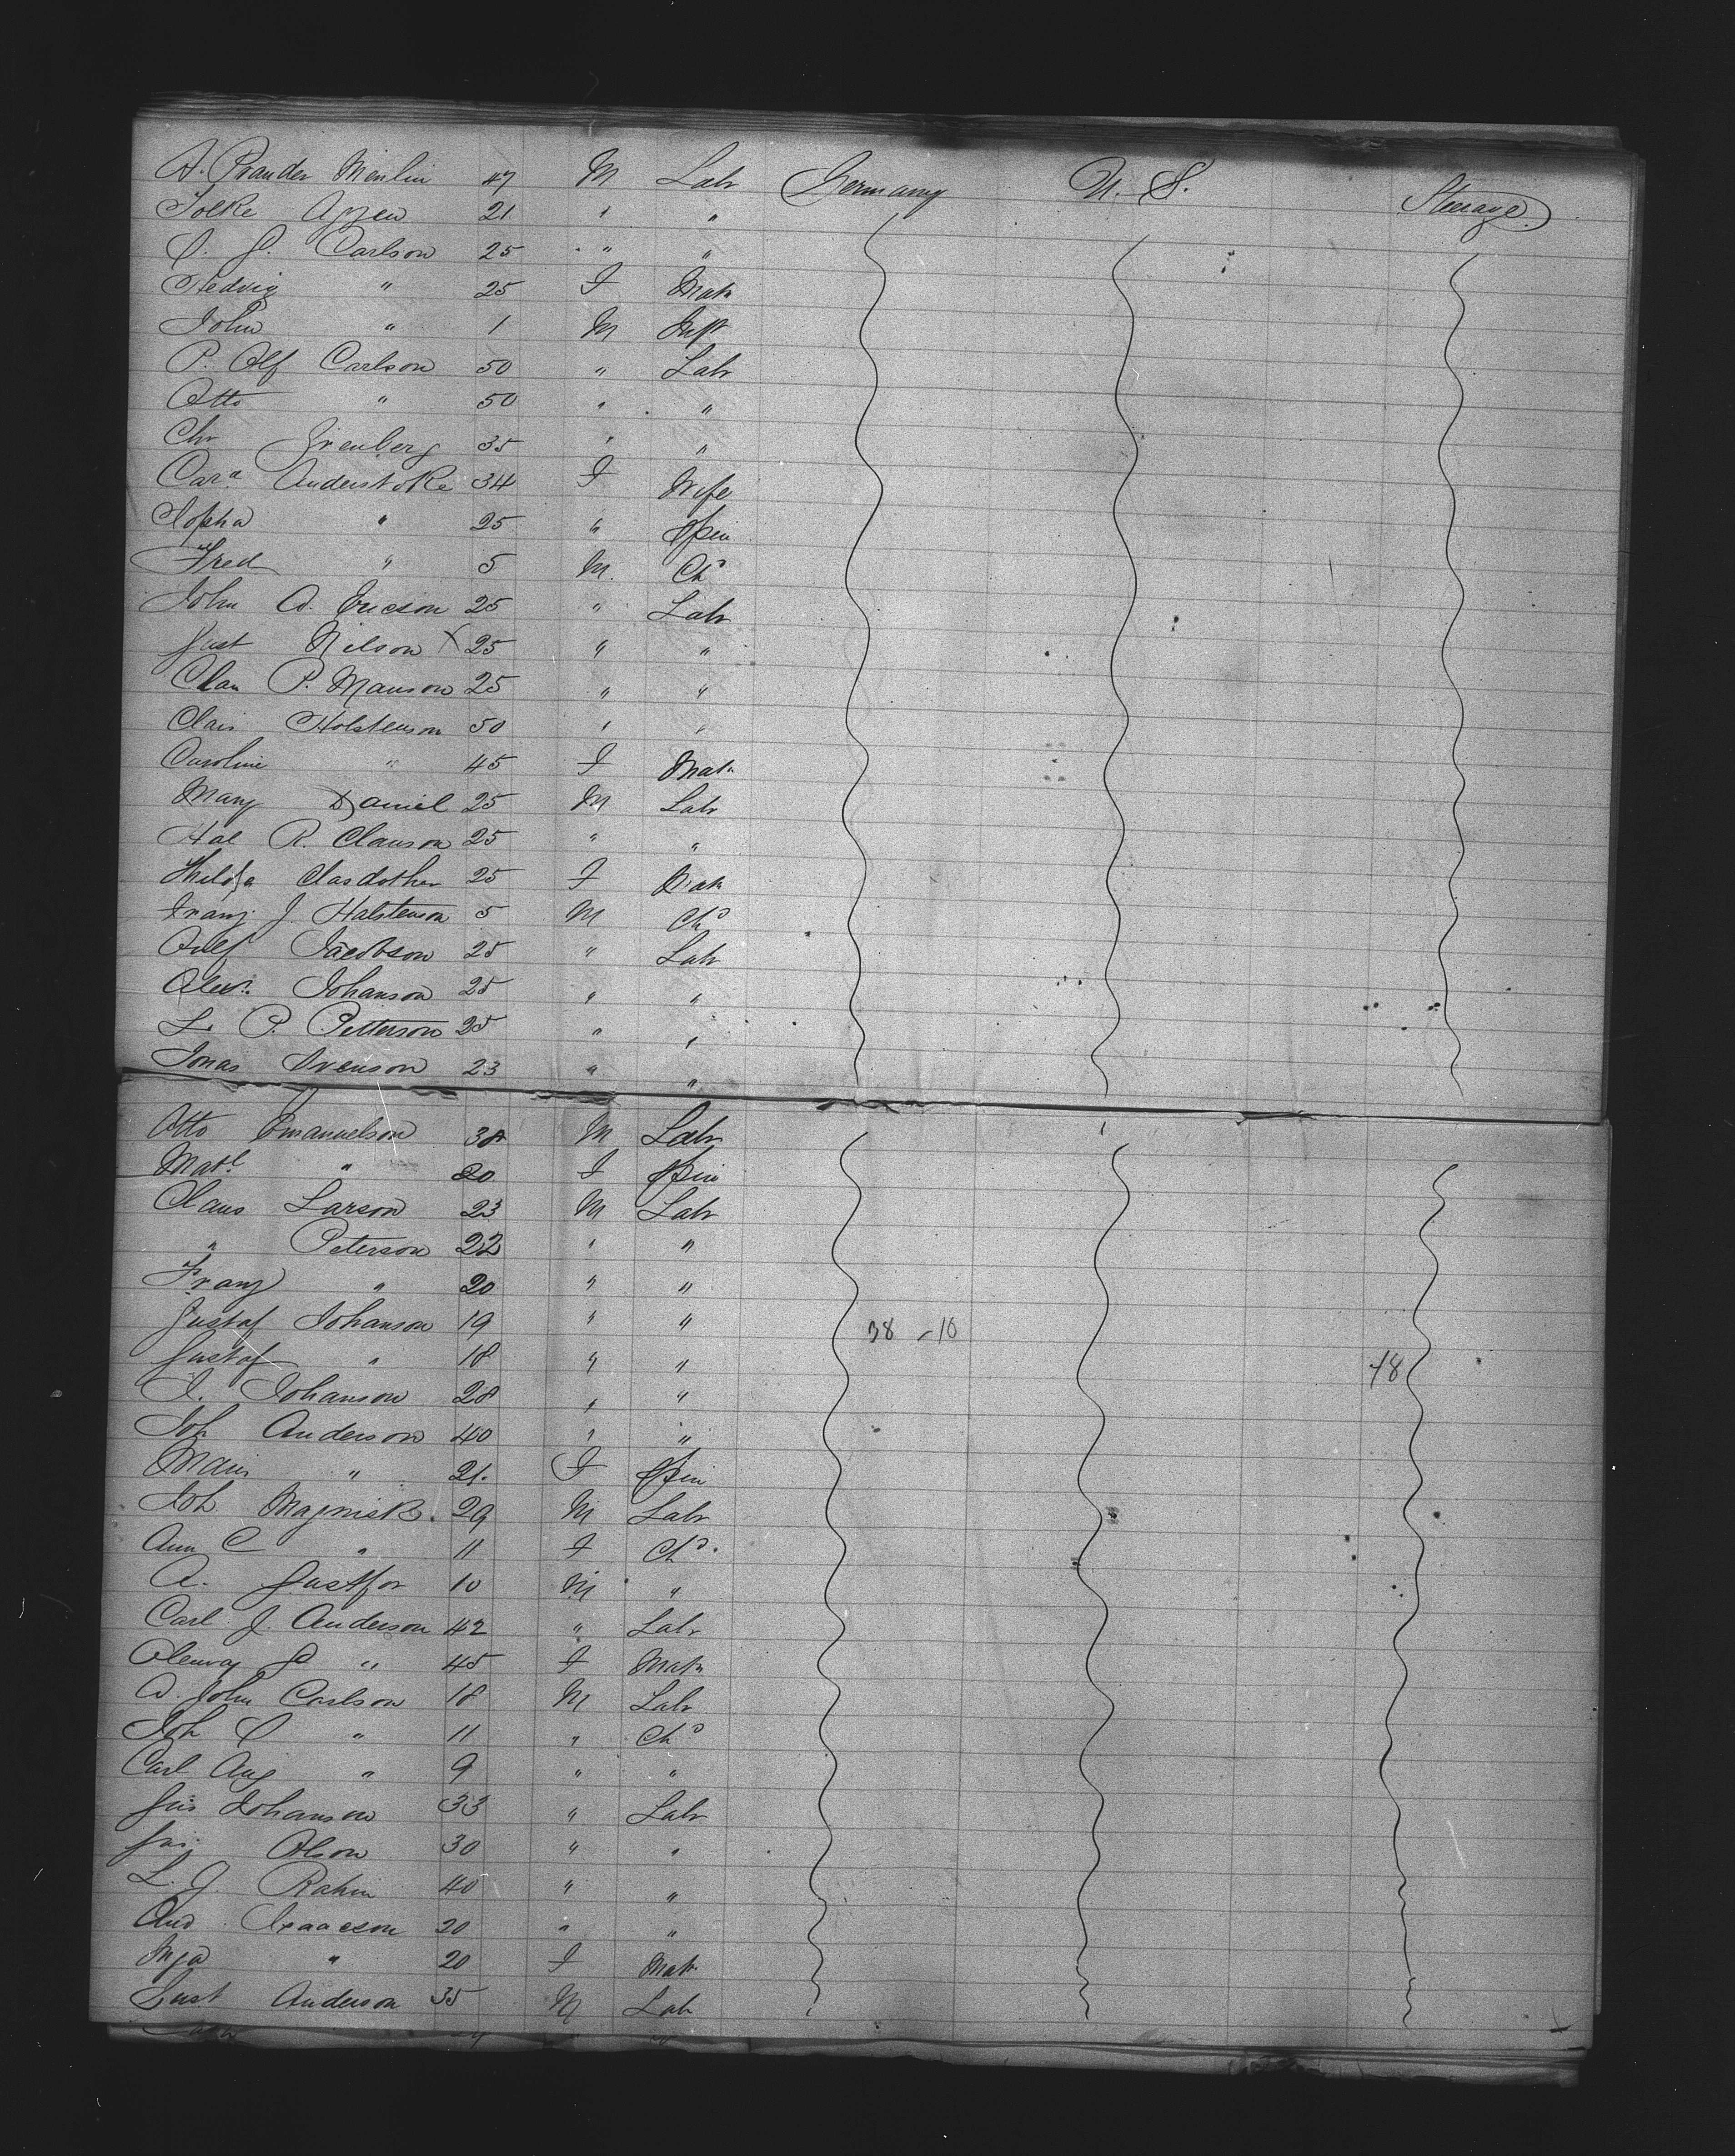 A. Prander Menlin 47 M Labr Germany U. S. Steerage
Folke Appen 21 " "
C. J. Carlson 25 " "
Hedvig " 25 F Matr
John " 1 M Inft
P. Alf Carlson 50 " Labr
Otto " 50 " "
Chr 35 " "
Cara Anderstoke 34 F Wife
Sopha " 25 " Spin
Fred " 5 M. Chd
John A. Ericson 25 " Labr
Gust Nilson X 25 " "
Clau P. Manson 25 " "
Clais Holstenson 50 " "
Caroline " 45 F Matr
Many Daniel 25 M Labr
Hal R. Clauson 25 " "
Hilda Clasdother 25 F Matr
Franz J. Halstenson 5 M Chd
Aulf Jacobson 25 " Labr
Alexr. Johanson 25 " "
L. P. Petterson 25 " "
Jonas Svenson 23 " "
Otto Emanuelson 38 M Labr
Matl " 20 F Spin
Claus Larson 23 M Labr
" Peterson 22 " "
Franz " 20 " "
Gustaf Johanson 19 " "
38 - 10
Gustaf " 18 " "
48
J. Johanson 28 " "
Joh Anderson 40 " "
" 21. F Spin
Joh. 29 M Labr
Ann C " 11 F Chd.
A. 10 M "
Carl J. Anderson 42 " Labr
" 45 F Matr
A. John Carlson 18 M Labr
Joh C " 11 " Chd
Carl Aug " 9 " "
Gus Johanson 33 " Labr
Olson 30 " "
L. J. Rahm 40 " "
And. Isaacson 20 " "
Inga " 20 F Matr
Gust Anderson 35 M Lab